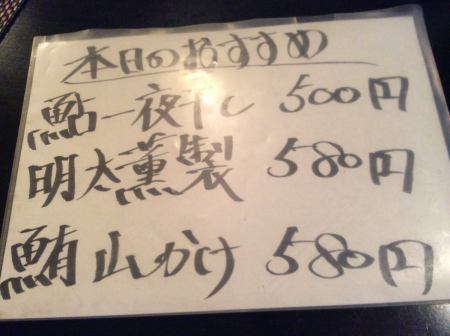 本日のおすすめ
鮎一夜干し 500円
明太薫製 580円
鮪山かけ 580円